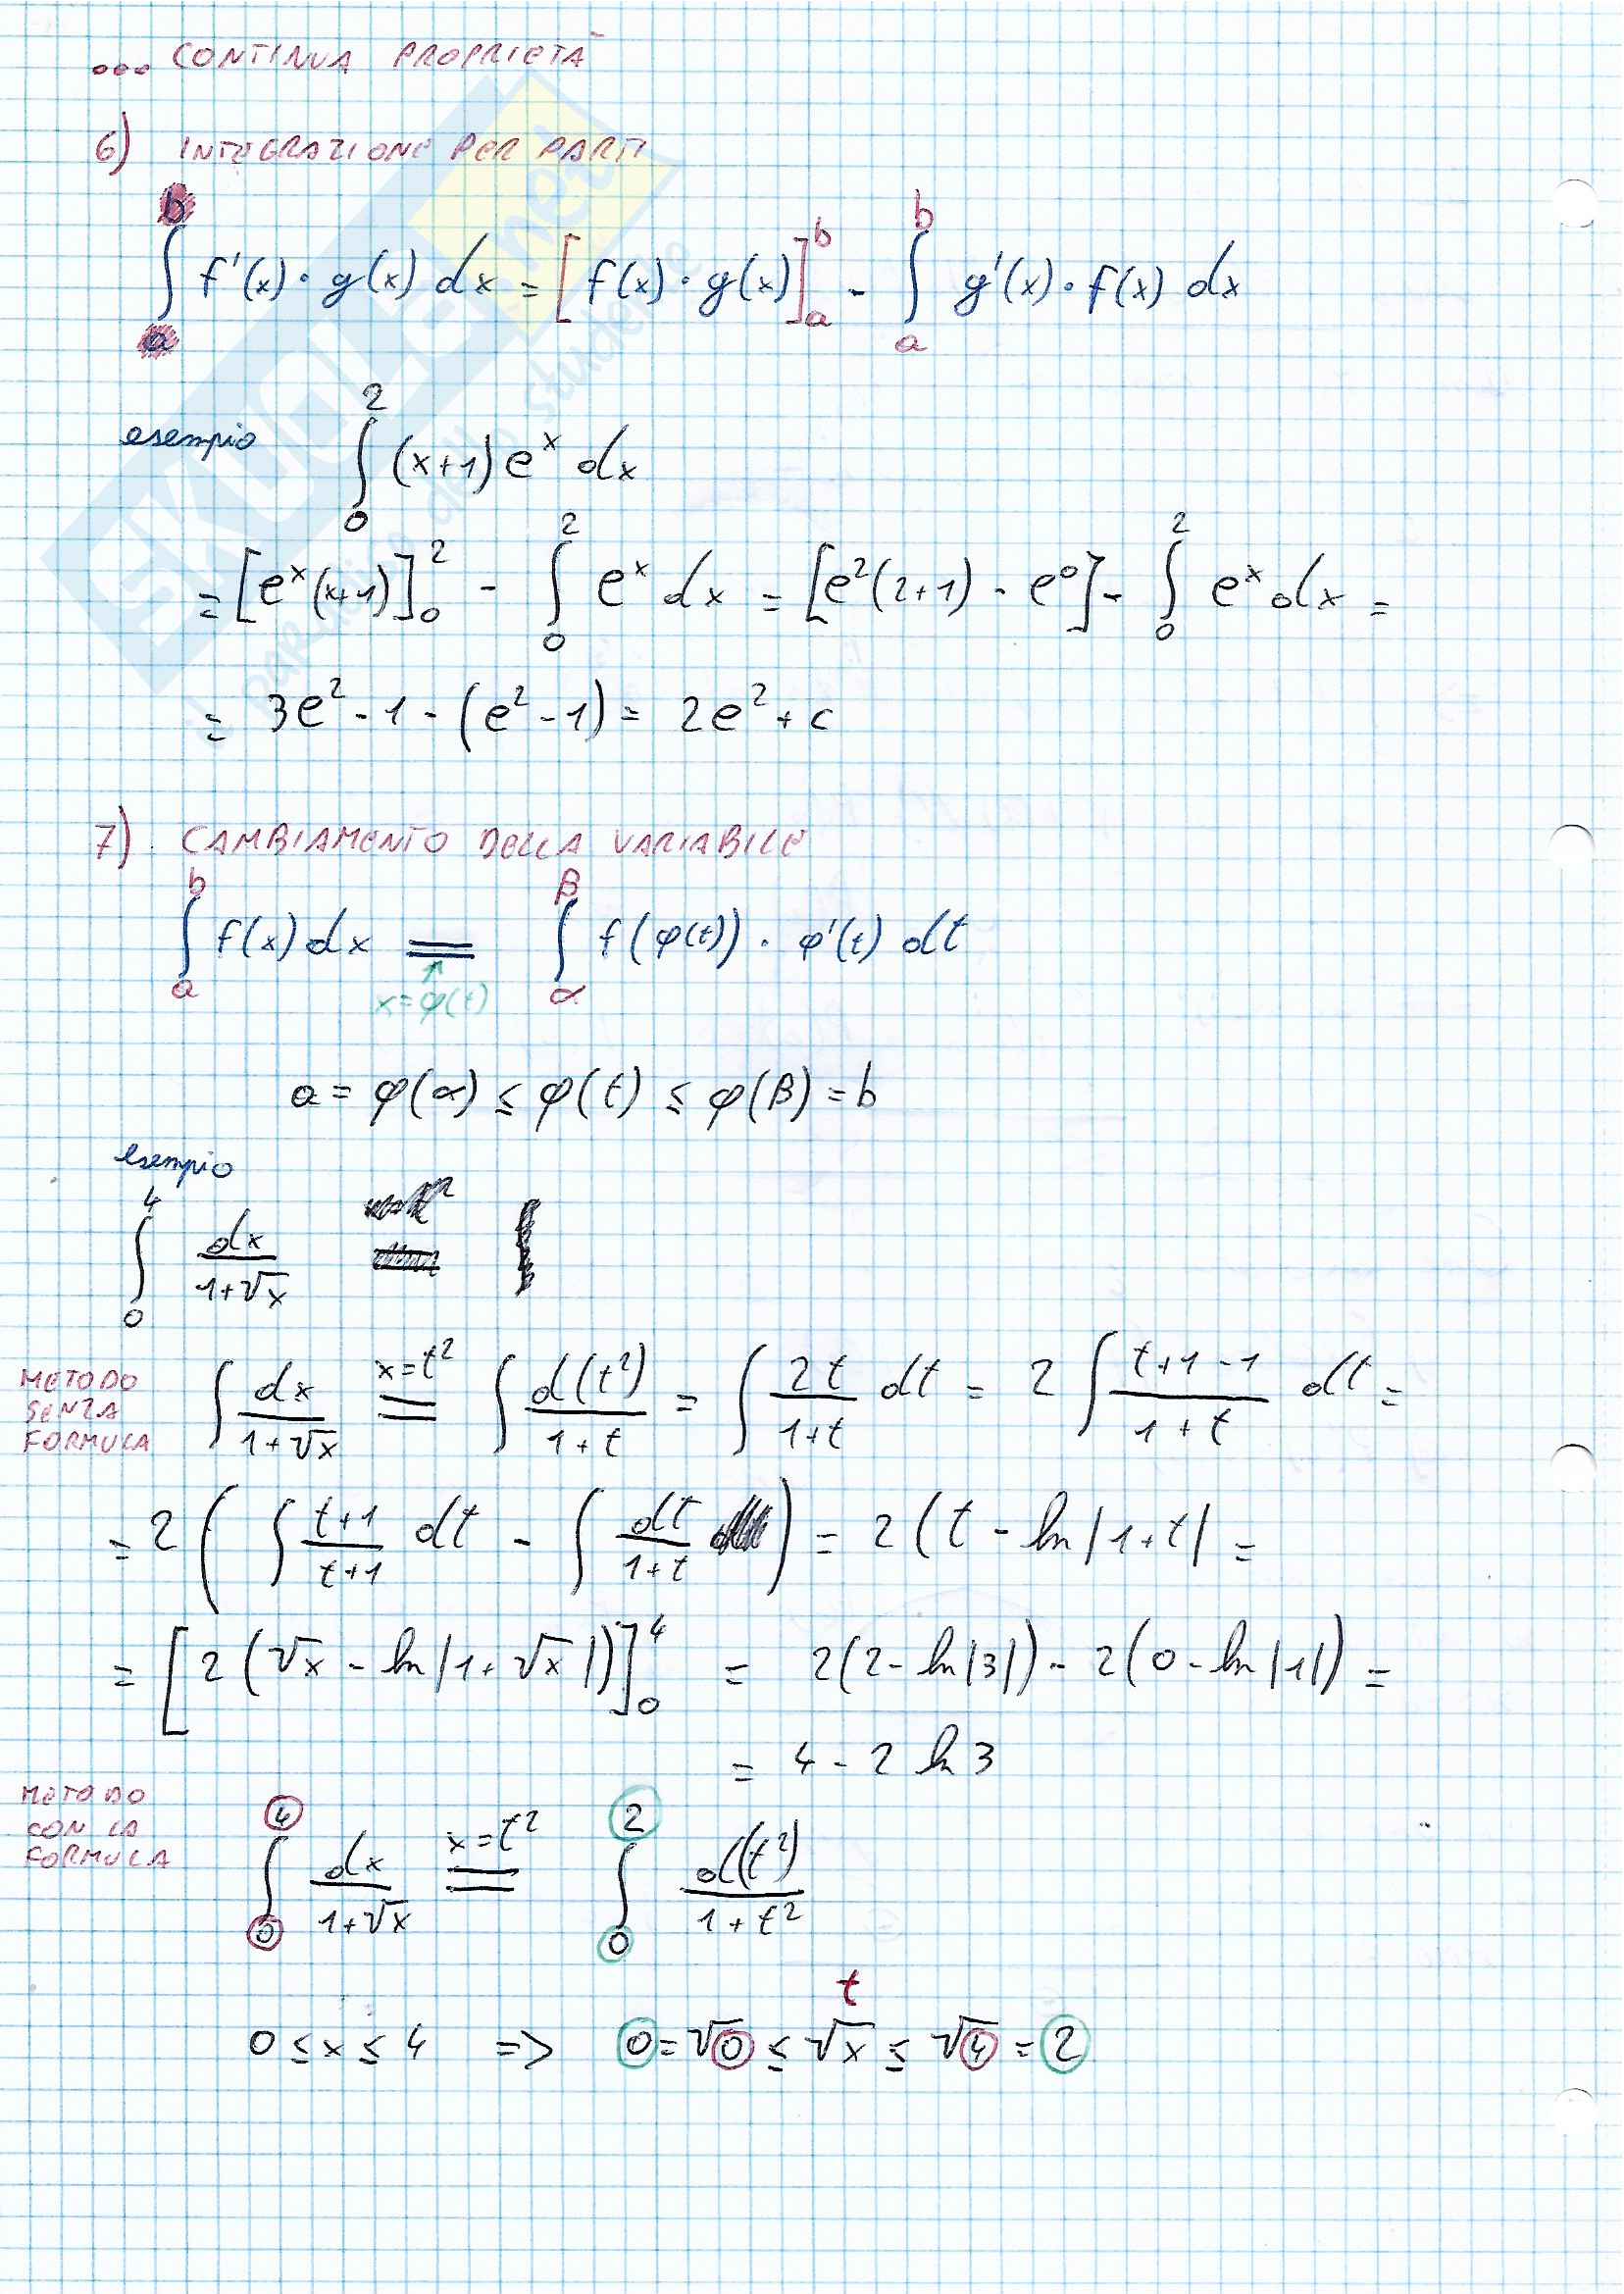 ... CONTINUA PROPRIETÀ
6) INTEGRAZIONE PER PARTI
∫_a^b f'(x)·g(x) dx = [f(x)·g(x)]_a^b - ∫_a^b g'(x)·f(x) dx
esempio ∫_0^2 (x+1) e^x dx
= [e^x(x+1)]_0^2 - ∫_0^2 e^x dx = [e^2(2+1) - e^0] - ∫_0^2 e^x dx =
= 3e^2 - 1 - (e^2 - 1) = 2e^2 + c
7) CAMBIAMENTO DELLA VARIABILE
∫_a^b f(x) dx = ∫_α^β f(φ(t)) · φ'(t) dt
↑
x=φ(t)
a = φ(α) ≤ φ(t) ≤ φ(β) = b
esempio
∫_0^4 dx/(1+√x)
METODO SENZA FORMULA ∫ dx/(1+√x) =(x=t^2) ∫ d(t^2)/(1+t) = ∫ 2t/(1+t) dt = 2 ∫ (t+1-1)/(1+t) dt =
= 2 ( ∫ (t+1)/(t+1) dt - ∫ dt/(1+t) ) = 2(t - ln|1+t| =
= [2(√x - ln|1+√x|)]_0^4 = 2(2 - ln|3|) - 2(0 - ln|1|) =
= 4 - 2 ln 3
METODO CON LA FORMULA ∫_0^4 dx/(1+√x) =(x=t^2) ∫_0^2 d(t^2)/(1+t^2)
t
0 ≤ x ≤ 4 => 0 = √0 ≤ √x ≤ √4 = 2